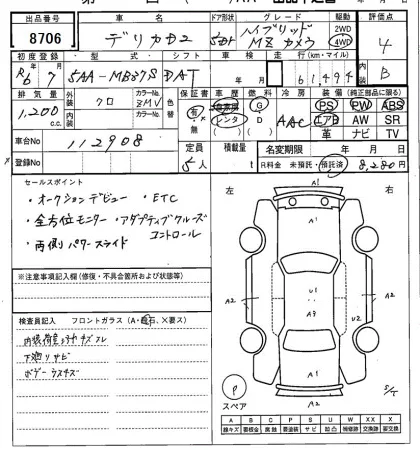 出品番号 車名 ドア形状 グレード 駆動 評価点
8706 デリカD2 5D ハイブリッド MZ 2WD 4WD 4
初度登録 型式 シフト 車検 走行(km・マイル) 内装
R6年7月 5AA-MB37S DAT 年 月 61,494 B
排気量 外装 クロ カラーNo. ZMV 色替 保証書 車歴 燃料 冷房 装備(純正部品に限る)
1,200 c.c. 内装 カラーNo. 有・無 自家用 レンタ G D AAC PS PW ABS
エアB AW SR
革 ナビ TV
車台No 112908 定員 積載量 名変期限 年 月 日
登録No 5人 t R料金 未預託・預託済 8,280円
セールスポイント
・オークションデビュー ・ETC
・全方位モニター ・アダプティブクルーズ
コントロール
・両側パワースライド
※注意事項記入欄(修復・不具合箇所および状態等)
検査員記入 フロントガラス(A・飛石・X要ス)
下廻りサビ
ボデーウスキズ
左 右
A1
A1
A2 A2
U1
A9
U2
A1
A2
P
スペア
A B C P S U W XX X
線キズ 要板金 腐蝕 要塗装 サビ 凹凸 補修跡 交換跡 要交換